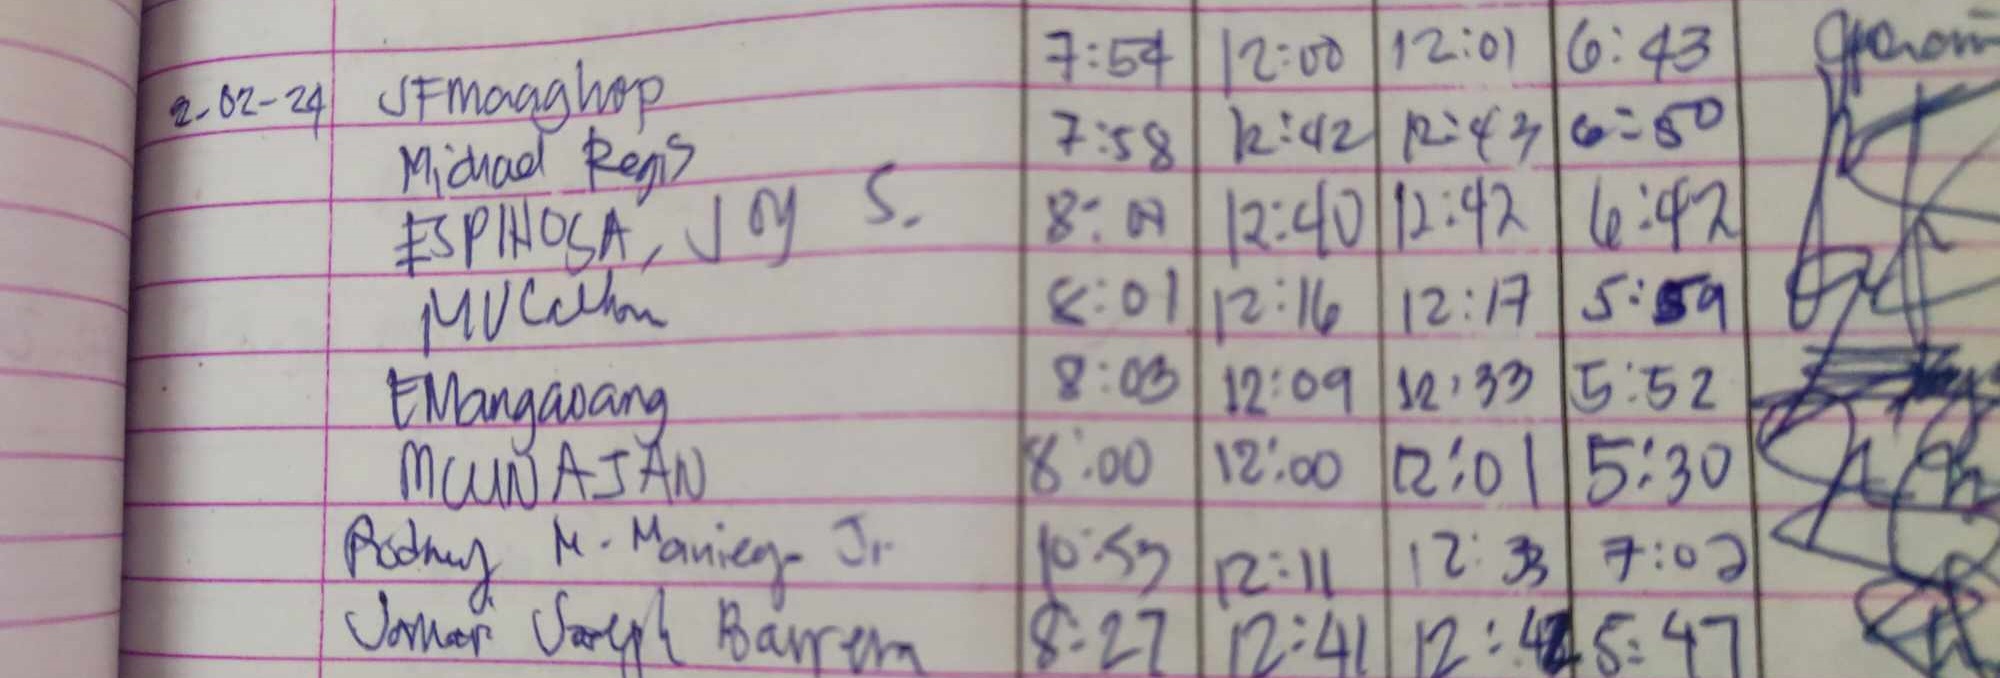 7:54 12:00 12:01 6:43
2-02-24 JFmaaghop 7:58 12:42 12:43 6:50
Michael Regis 8:01 12:40 12:42 6:42
ESPINOSA, Joy S. 8:01 12:16 12:17 5:59
EMangaoang 8:03 12:09 12:33 5:52
MCUNAJAN 8:00 12:00 12:01 5:30
Rodney M. Manieg Jr. 10:53 12:11 12:33 7:02
Jomar Joseph Barrera 8:27 12:41 12:42 5:47